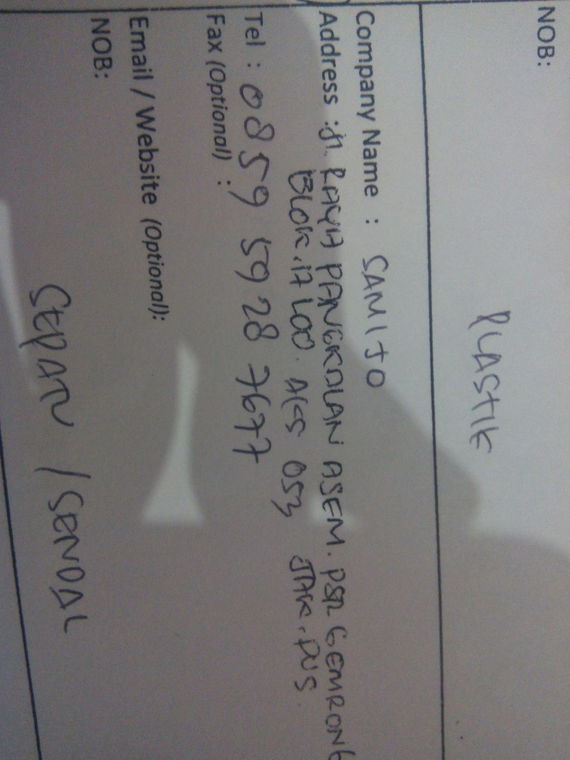 NOB:
PLASTIK
Company Name : SAMIJO
Address : Jl. RAYA PANGKALAN ASEM. PSR GEMRONG
BLOK. i7 LOO. AKS 053 JAK. PUS.
Tel : 0859 5928 7677
Fax (Optional) :
Email / Website (Optional):
NOB:
SEPATU / SENDAL